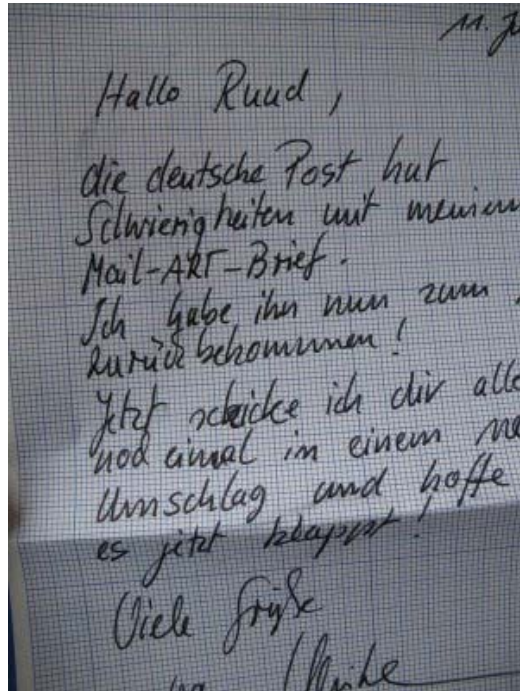 11. Ju
Hallo Ruud,
die deutsche Post hat
Schwierigkeiten mit meinem
Mail-ART-Brief.
Ich habe ihn nun zum
zurückbekommen!
Jetzt schicke ich dir alle
noch einmal in einem ne
Umschlag und hoffe
es jetzt klappt!
Viele Grüße